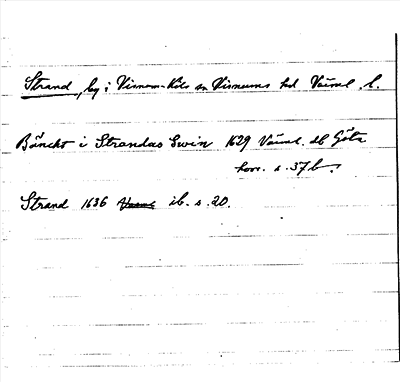 Strand, by i Visnum-Kils sn Visnums hd Värml. l.
Bänckt i Strandas Swin 1629 Värml. db Göta
hovr. s. 37 b.
Strand 1636 ib. s. 20.